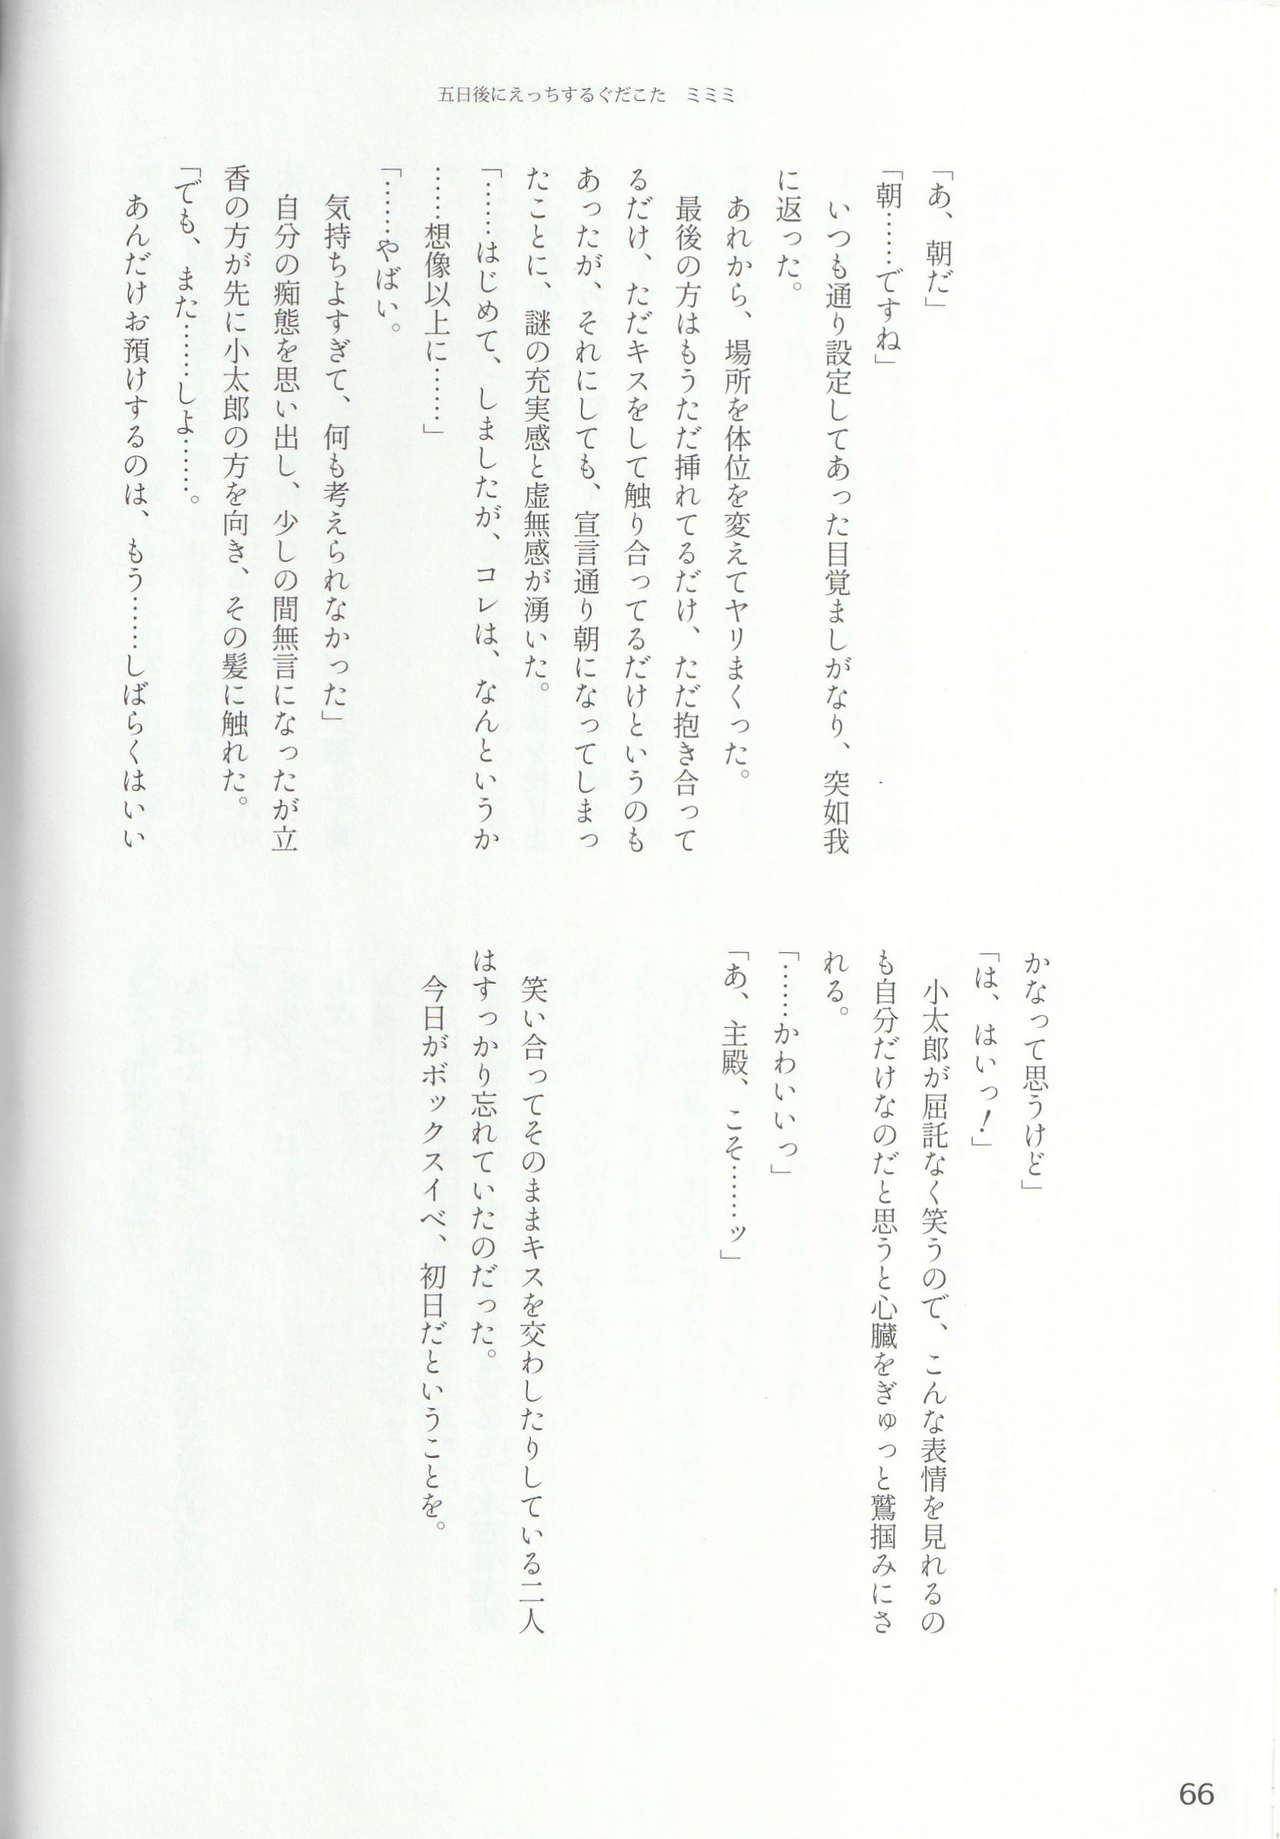 五日後にえっちするぐだこた　ミミミ
「あ、朝だ」
「朝……ですね」
　いつも通り設定してあった目覚ましがなり、突如我
に返った。
　あれから、場所を体位を変えてヤリまくった。
　最後の方はもうただ挿れてるだけ、ただ抱き合って
るだけ、ただキスをして触り合ってるだけというのも
あったが、それにしても、宣言通り朝になってしまっ
たことに、謎の充実感と虚無感が湧いた。
「……はじめて、しましたが、コレは、なんというか
……想像以上に……」
「……やばい。
　気持ちよすぎて、何も考えられなかった」
　自分の痴態を思い出し、少しの間無言になったが立
香の方が先に小太郎の方を向き、その髪に触れた。
「でも、また……しよ……。
　あんだけお預けするのは、もう……しばらくはいい
かなって思うけど」
「は、はいっ！」
　小太郎が屈託なく笑うので、こんな表情を見れるの
も自分だけなのだと思うと心臓をぎゅっと鷲掴みにさ
れる。
「……かわいいっ」
「あ、主殿、こそ……ッ」
　笑い合ってそのままキスを交わしたりしている二人
はすっかり忘れていたのだった。
　今日がボックスイベ、初日だということを。
66